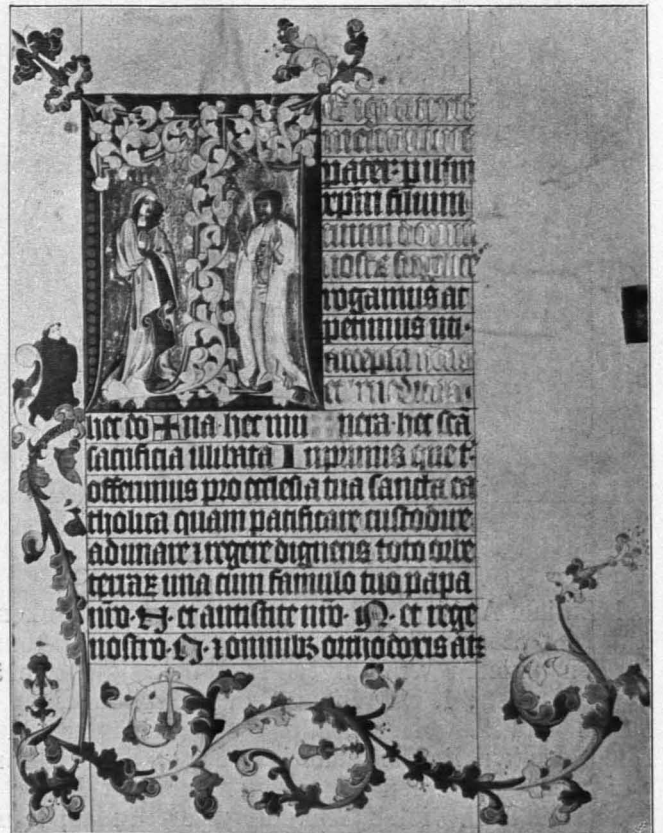 T E igitur cle
pater· p ihm
xpm filium
tuum domin
nostrꝝ supplice
rogamus ac
petimus uti·
accepta habeas
et benedicas·
hec do ✠ na· hec mu nera· hec scā
sacrificia illibata In primis que t·
offerimus pro ecclesia tua sancta ca
tholica quam pacificare custodire
adunare ⁊ regere digneris toto orbe
terraꝝ una cum famulo tuo papa
nrō· N· et antistite nrō· N· et rege
nostro· N· ⁊ omnibꝫ orthodoxis atꝫ